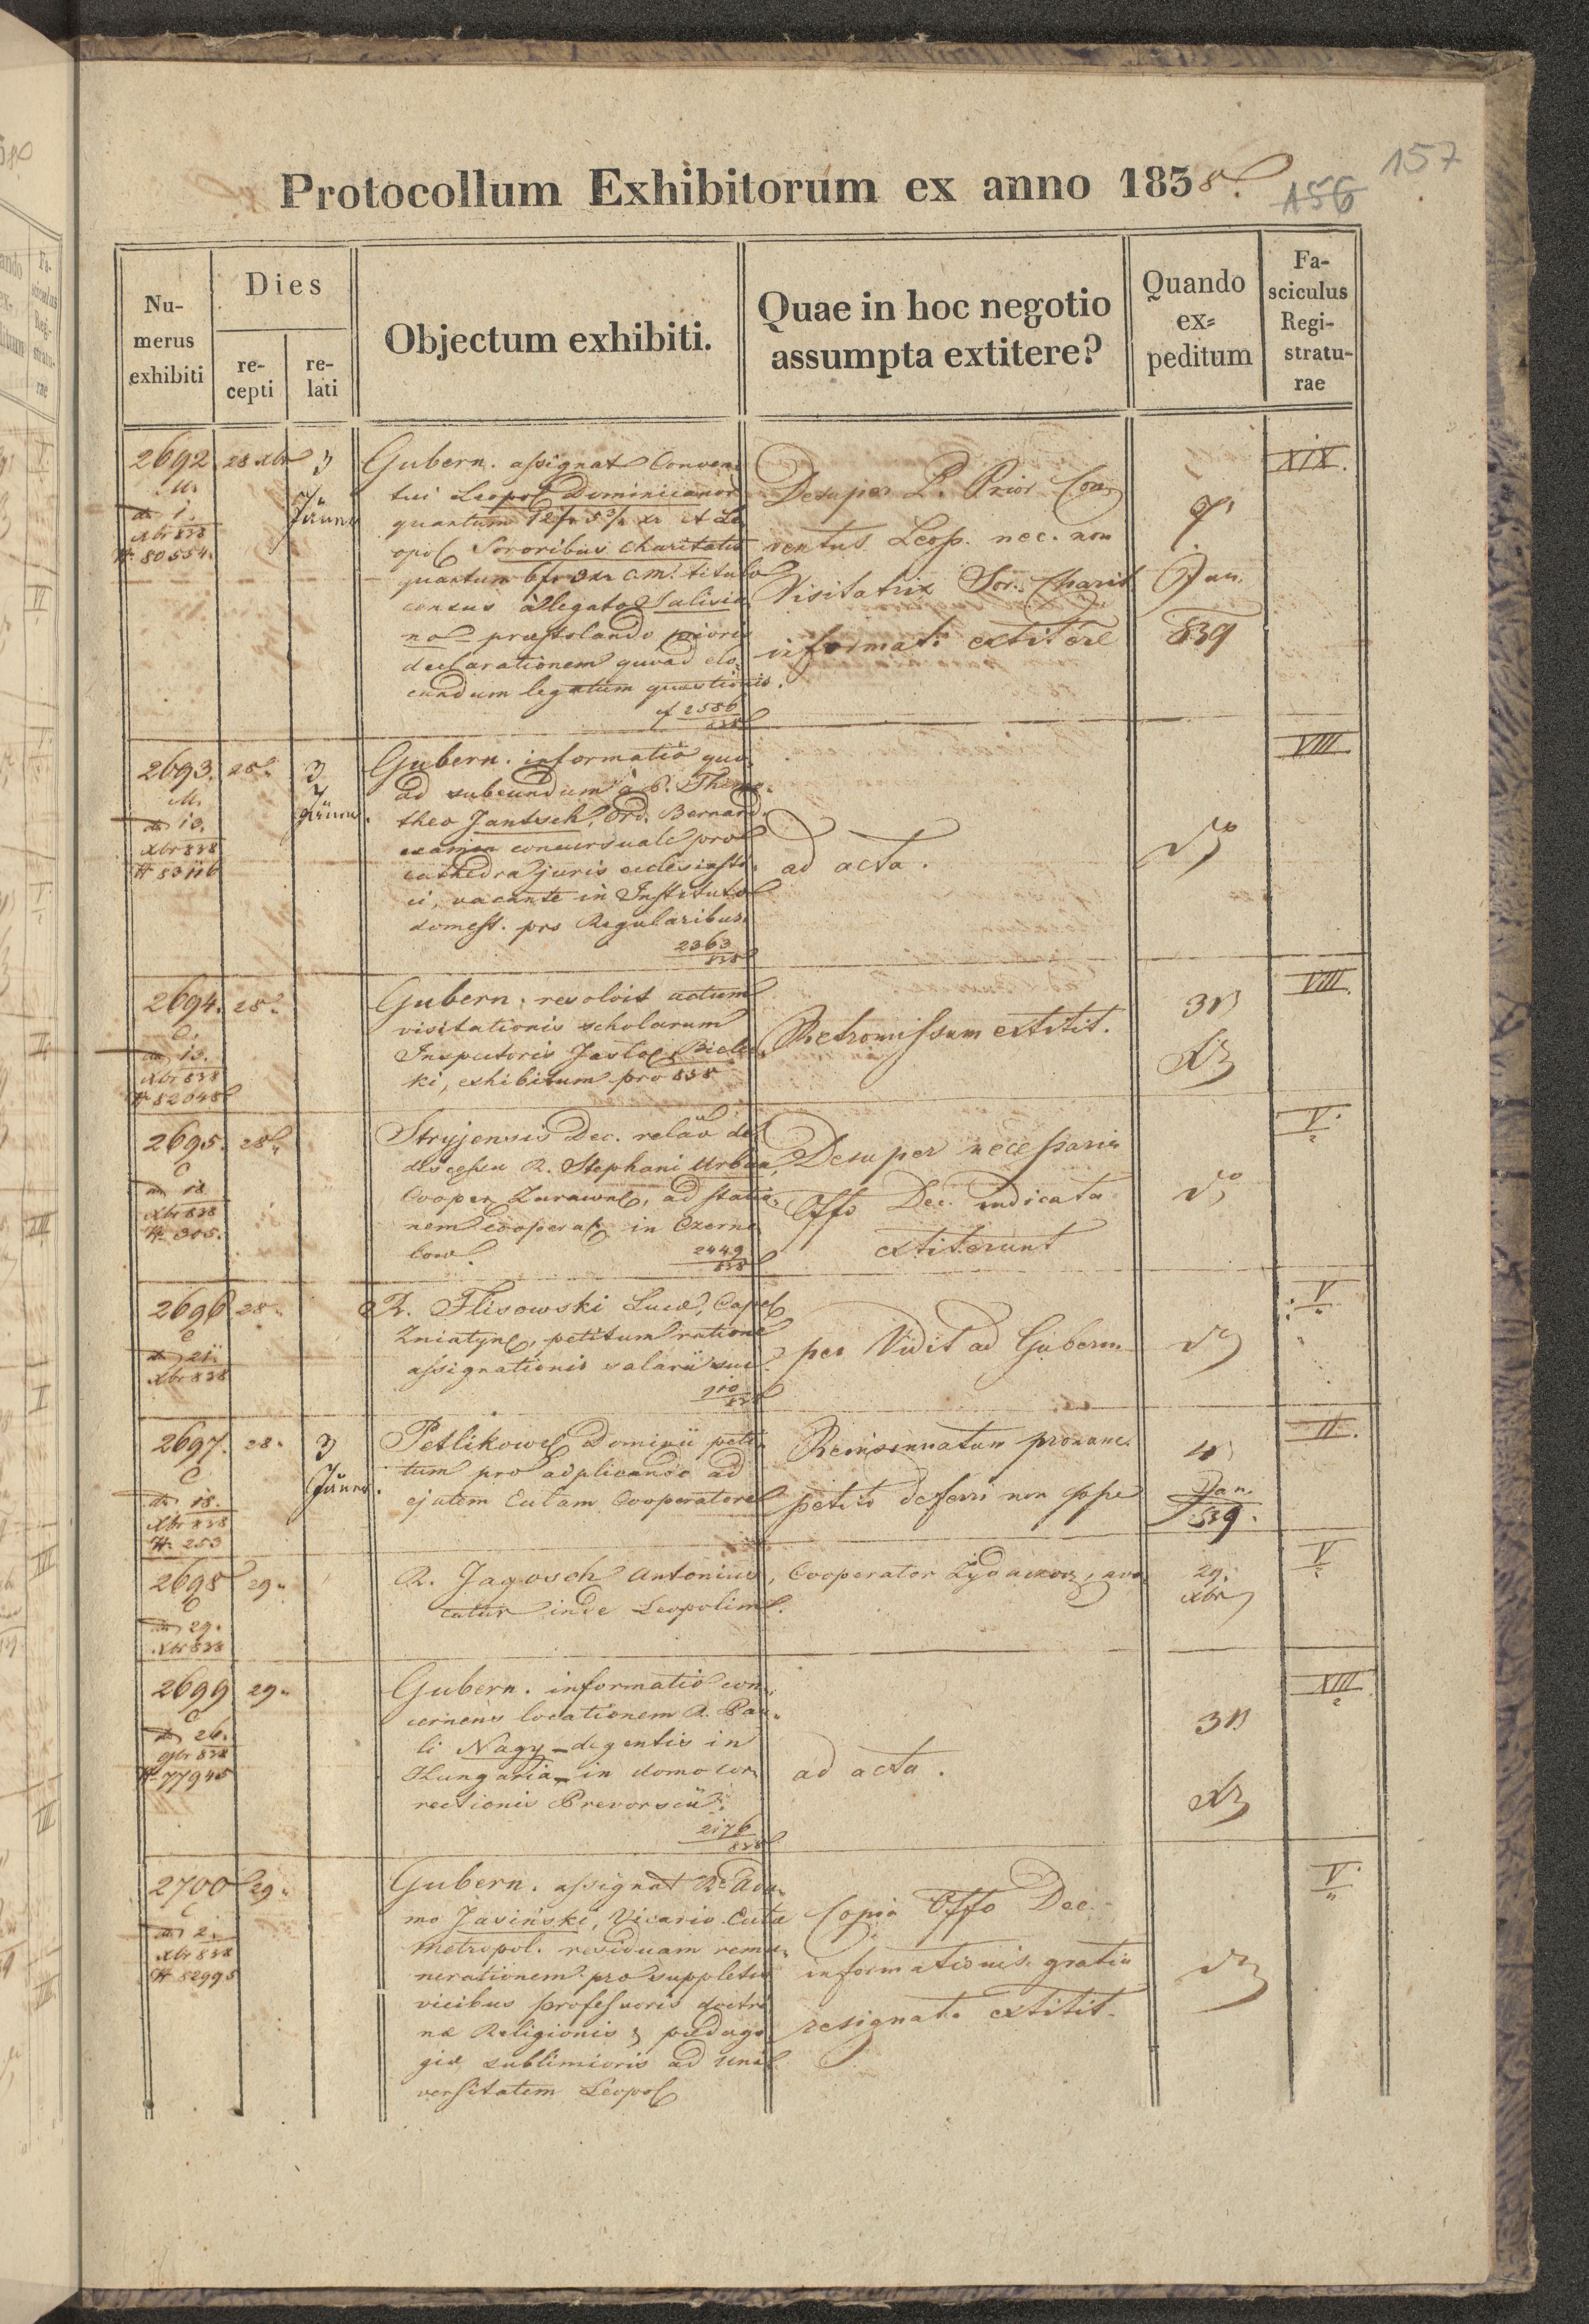 157
156
Protocollum Exhibitorum ex anno 1838.
Nu-
merus
exhibiti
Dies
re-
cepti
re-
lati
Objectum exhibiti.
Quae in hoc negotio
assumpta extitere?
Quando
ex=
peditum
Fa-
sciculus
Regi-
stratu-
rae
2692.
M.
1.
Xbr 838
# 80554.
28 Xbr
3
Jänn
Gubern. assignat Conven-
tui Leopol Dominicanor
quantum
opol Sororibus Charitatis
quantum 6 fr 3 xr CM. titulo
census
prestolando prioris
declarationem quoad elo-
candum legatum quaestionis.
cf 2586
838
Desuper P. Prior Con
ventus Leop. nec. non
Visitatrix Sor. Charit
informati extitere
9
Jan.
839
XIX.
2693.
M.
10.
Xbr 838
# 83116
28.
3
Jänn.
Gubern. informatio quo-
ad subeundum à P. Thimo-
theo Jantsch, Ord. Bernard.
examen concursuale pro
cathedra juris ecclesiasti-
ci, vacante in Instituto
domest. pro Regularibus.
2363
838
ad acta.
VIII
2694.
C.
13.
Xbr 838
# 82648
28.
Gubern. resolvit actum
visitationis scholarum
Inspectoris Jaslo Biele
ki, exhibitum pro 838
Retromissum extitit.
31
VIII.
2695.
C
18
Xbr 838
# 305.
28.
Stryjensis Dec. relao de
discessu R. Stephani Urban,
Cooper Zurawn, ad statio-
nem cooperat in Czerne
low.
2449
838
Desuper necessaria
Offo Dec. indicata
extiterunt
V.
2696
C
21.
Xbr 838
28.
R. Flisowski Lucæ, Capel
Zniatyn, petitum ratione
assignationis salarii sui.
910
838
per Vidit ad Gubern
V
2697.
C
18.
Xbr 838
# 253
28.
3
Jänn.
Petlikow Dominii peti-
tum pro adplicando ad
ejatem Curam Cooperatore
petito deferri non posse
4
Jan.
839.
II.
2698
C
29.
Xbr 838
29.
R. Jagosch Antonius, Cooperator Zydaczov, avo-
catur inde Leopolim.
29.
Xbr
V
2699
C
26.
9br 838
# 77945
29.
Gubern. informatio con-
cernens locationem R. Pau-
li Nagy - degentis in
Hungaria - in domo cor-
rectionis Prevorscii.
2176
838
ad acta.
31
XIII
2700
C
2.
Xbr 838
# 82995
29.
Gubern. assignat Rdo Ada-
mo Jasiński, Vicario Eccla
Metropol. residuam remu-
nerationem pro suppletis
vicibus professoris doctri
næ Religionis & pædago
giæ sublimioris ad uni
versitatem Leopol
Copia Offo Dec.
informationis gratia
resignata extitit.
V.